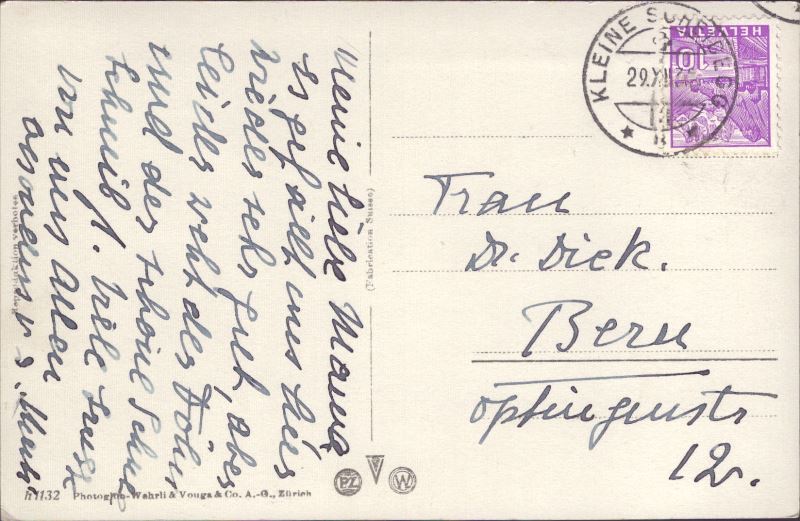 Meine liebe Mama
Es gefällt uns hier
wieder sehr gut, aber
leider weht der Föhn
und der schöne Schnee
schmilzt. Viele Grüsse
von uns Allen
besonders v.
Reproduktion verboten
(Fabrication Suisse)
h1132 Photogl̶ob-Wehrli & Vouga & Co. A.-G., Zürich
PZ
W
KLEINE SCHEIDEGG
29.XII.
HELVETIA
10
Frau
Dr. Dick.
Bern
Optingenstr
12.